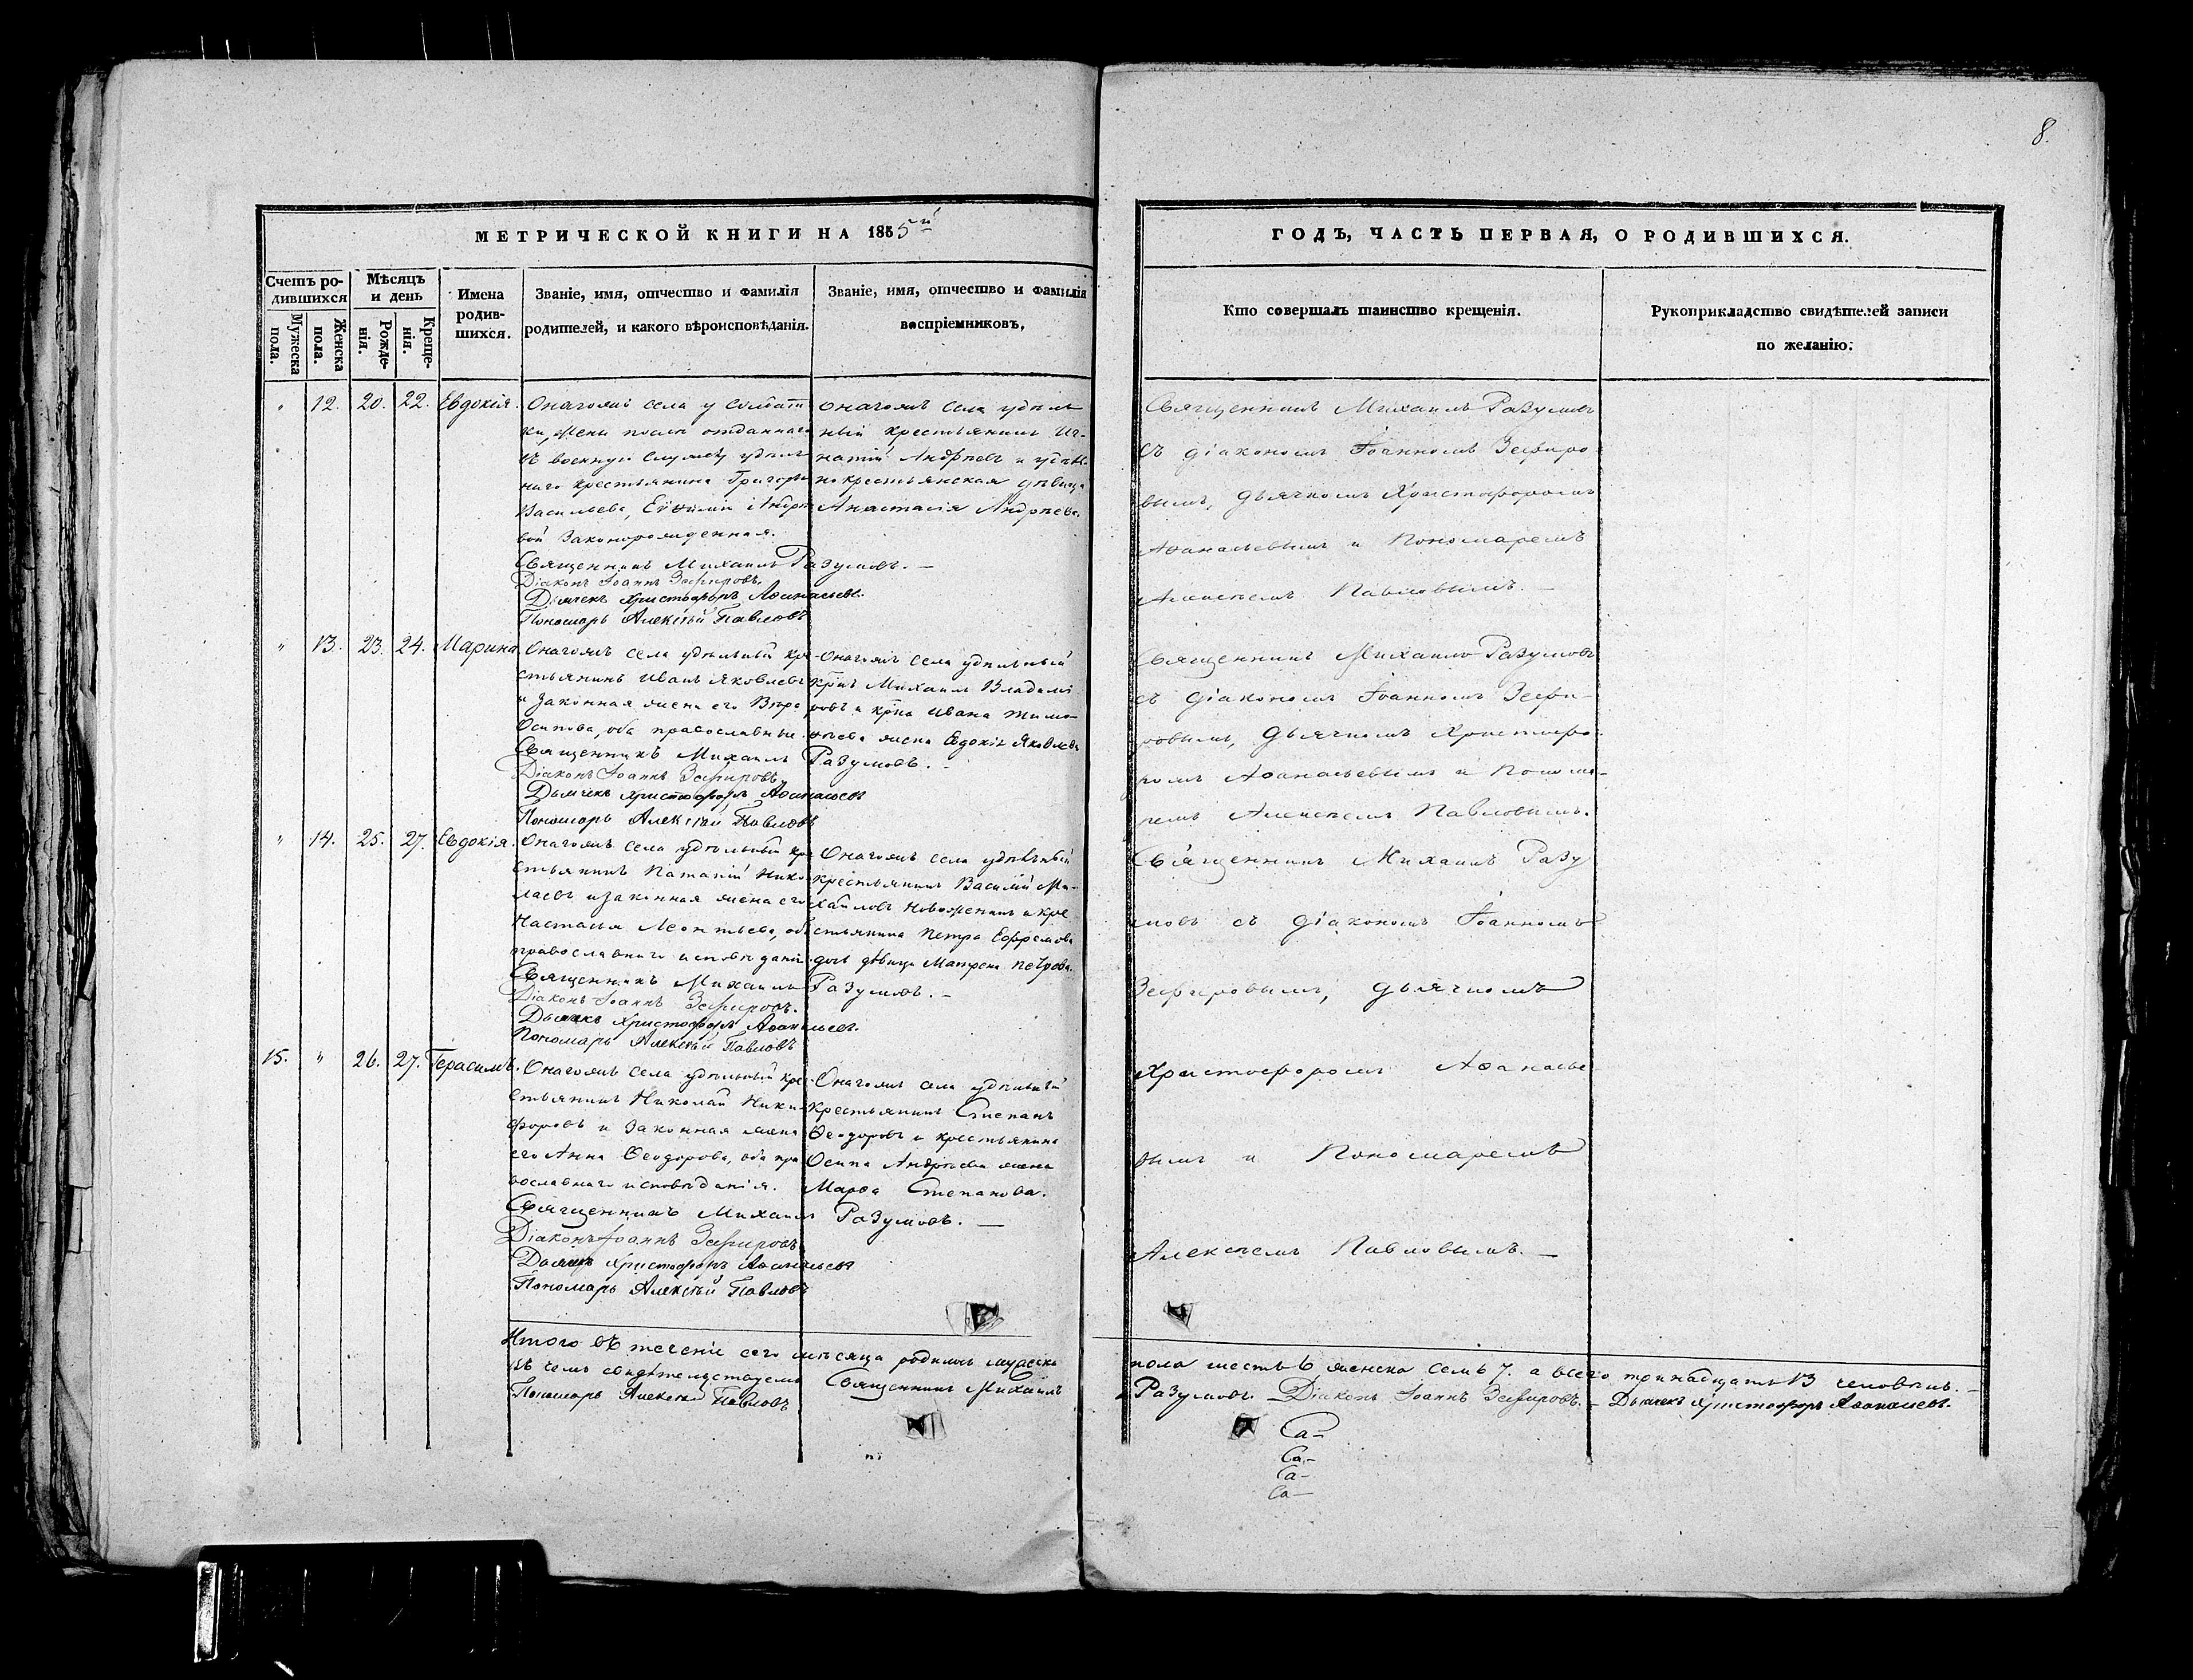 8.
МЕТРИЧЕСКОЙ КНИГИ НА 1855й
ГОДЪ, ЧАСТЬ ПЕРВАЯ, О РОДИВШИХСЯ.
Счетъ ро-
дившихся
Мужеска
пола.
Женска
пола.
Мѣсяцъ
и день
Рожде-
нія.
Креще-
нія.
Имена
родив-
шихся.
Званіе, имя, отчество и фамилія
родителей, и какого вѣроисповѣданія.
Званіе, имя, отчество и фамилія
воспріемниковъ,
Кто совершалъ таинство крещенія.
Рукоприкладство свидѣтелей записи
по желанію.
" 12. 20. 22. Евдокія.
Онагожъ села у солдат
ки, жены послѣ отданнаго
въ военную службу удѣль
наго крестьянина Григорья
Васильева, Евѳиміи Андре
вой законорожденная.
Священникъ Михаилъ Разумовъ. —
Діаконъ Іоаннъ Зефировъ.
Дьячекъ Христофоръ Аѳанасьевъ.
Пономарь Алексѣй Павловъ
Онагожъ села удѣль
ный крестьянинъ Иг-
натій Андреевъ и удѣль
нокрестьянская дѣвица
Анастасія Андреева.
Священникъ Михаилъ Разумовъ
съ діакономъ Іоанномъ Зефиро
вымъ, дьячкомъ Христофоромъ
Аѳанасьевымъ и Пономаремъ
Алексѣемъ Павловымъ. —
" 13. 23. 24. Марина
Онагожъ села удѣльный кре
стьянинъ Иванъ Яковлевъ
и законная жена его Вѣра
Осипова, оба православные.
Священникъ Михаилъ Разумовъ. —
Діаконъ Іоаннъ Зефировъ
Дьячекъ Христофоръ Аѳанасьевъ
Пономарь Алексѣй Павловъ
Онагожъ села удѣльный
крнъ Михаилъ Владимі
ровъ и крна Ивана Тимо-
ѳеева жена Евдокія Яковлева
Священникъ Михаилъ Разумовъ
съ діакономъ Іоанномъ Зефи-
ровымъ, дьячкомъ Христофо-
ромъ Аѳанасьевымъ и Понома-
ремъ Алексѣемъ Павловымъ.
" 14. 25. 27. Евдокія.
Онагожъ села удѣльный кре
стьянинъ Патапій Нико
лаевъ и законная жена его
Настасья Леонтьева, оба
православнаго исповѣданія.
Священникъ Михаилъ Разумовъ. —
Діаконъ Іоаннъ Зефировъ.
Дьячекъ Христофоръ Аѳанасьевъ.
Пономарь Алексѣй Павловъ
Онагожъ села удѣльный
крестьянинъ Василій Ми-
хайловъ Новоженинъ и кре
стьянина Петра Ефремова
дочь дѣвица Матрена Петрова.
Священникъ Михаилъ Разу
мовъ съ діакономъ Іоанномъ
Зефировымъ, дьячкомъ
Христофоромъ Аѳанасье
вымъ и Пономаремъ
Алексѣемъ Павловымъ. —
15. " 26. 27. Герасимъ.
Онагожъ села удѣльный кре-
стьянинъ Николай Ники
форовъ и законная жена
его Анна Ѳеодорова, оба пра
вославнаго исповѣданія.
Священникъ Михаилъ Разумовъ. —
Діаконъ Іоаннъ Зефировъ
Дьячекъ Христофоръ Аѳанасьевъ
Пономарь Алексѣй Павловъ
Онагожъ села удѣльный
крестьянинъ Степанъ
Ѳеодоровъ и крестьянина
Осипа Андреева жена
Марѳа Степанова.
Итого въ теченіе сего мѣсяца родилось мужеска пола шесть 6 женска семь 7. а всего тринадцать 13 человѣкъ. —
Въ чемъ свидѣтельствуемъ Священникъ Михаилъ Разумовъ. Діаконъ Іоаннъ Зефировъ. — Дьячекъ Христофоръ Аѳанасьевъ.
Пономарь Алексѣй Павловъ
Са-
Са-
Са-
Са-